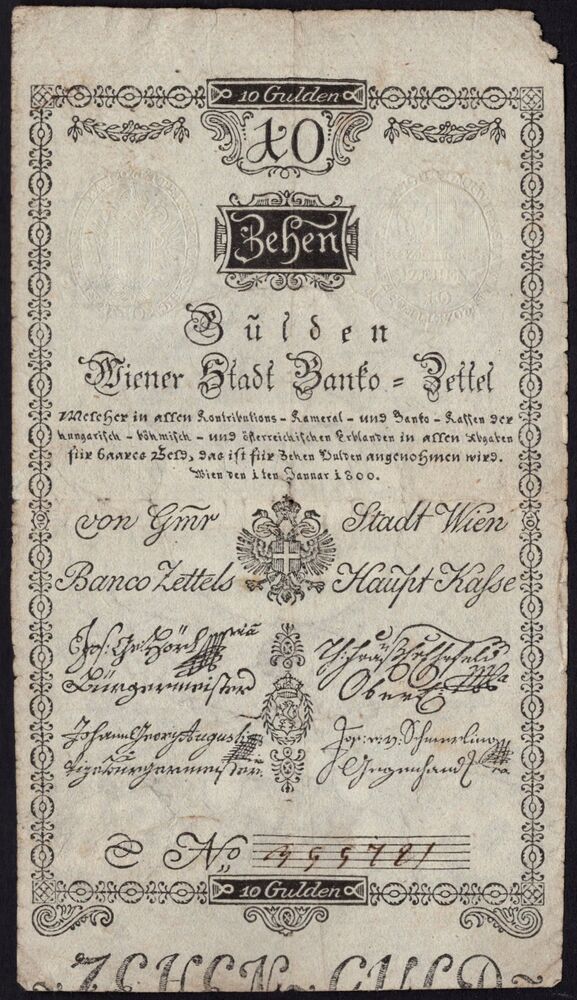 10 Gulden
10
Zehen
Gulden
Wiener Stadt Banko = Zettel
Welcher in allen Kontributions - Kameral - und Banko - Kassen der
hungarisch - böhmisch - und österreichischen Erblanden in allen Abgaben
für baares Geld, das ist für Zehen Gulden angenohmen wird.
Wien den 1ten Jannar 1800.
von Gmr Stadt Wien
Banco Zettels Haupt Kasse
Bürgermeister
Johann Georg August
Jos: v: Schmerling
Gegenhand
No 355781
10 Gulden
ZEHEN GULD